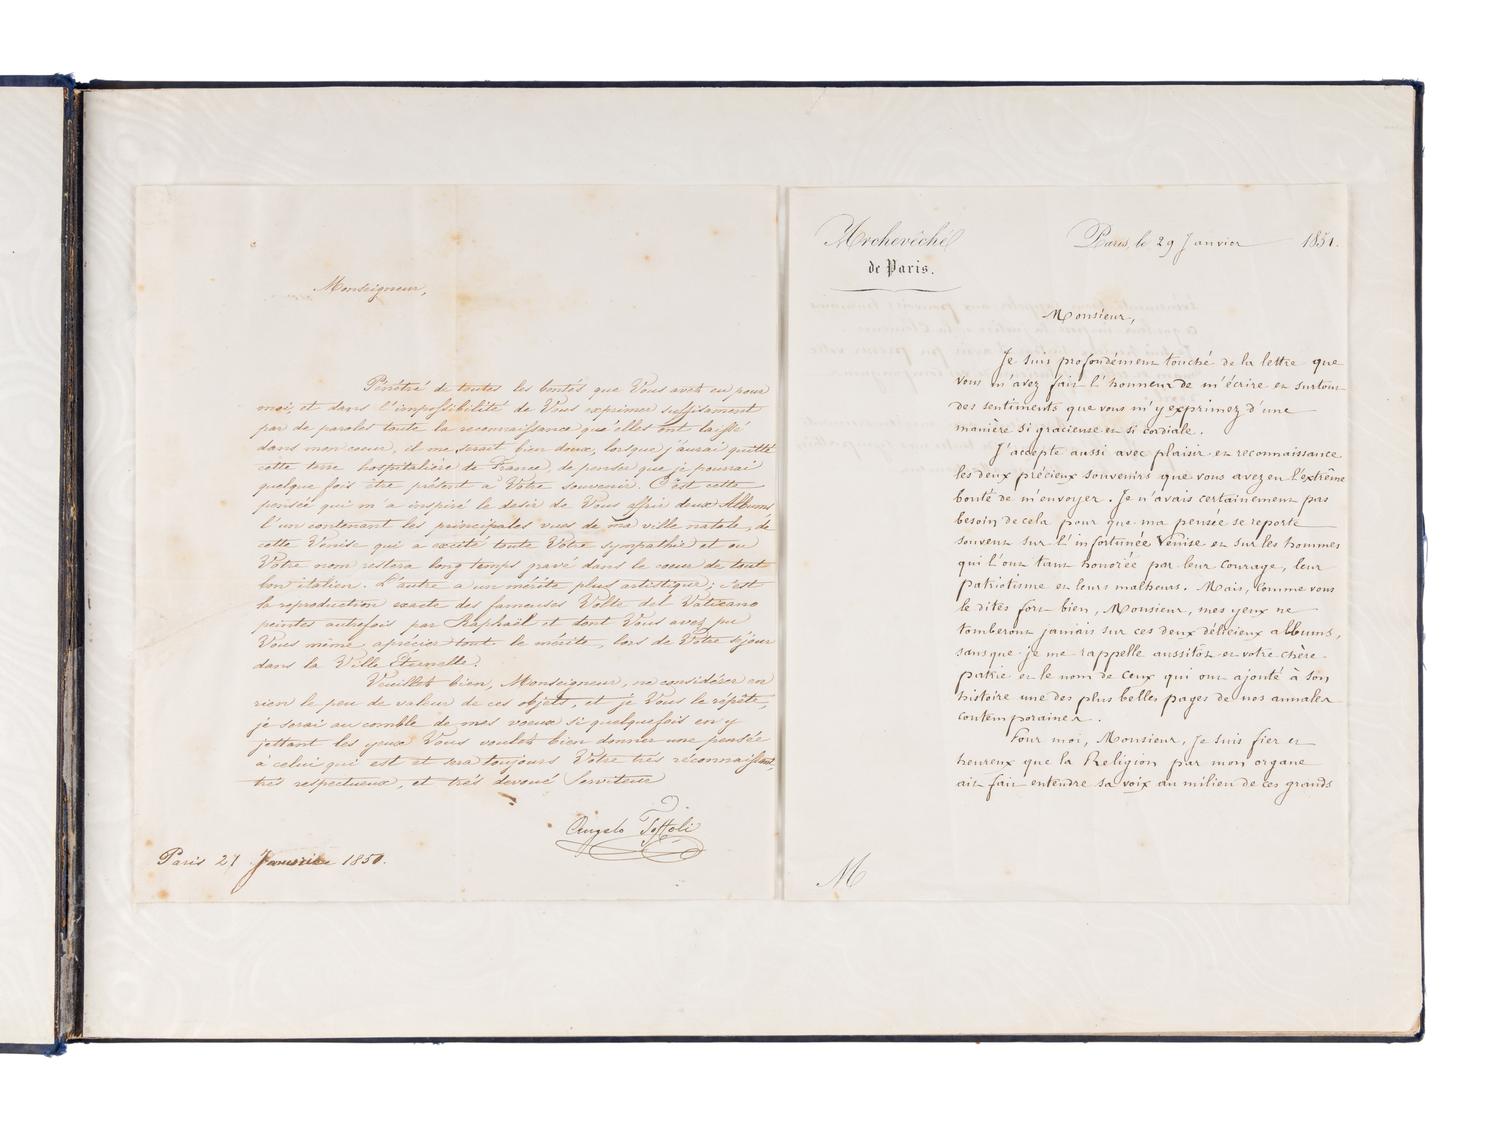 Monseigneur,
Pénétré de toutes les bontés que Vous avez eu pour
moi, et dans l'impossibilité de Vous exprimer suffisament
par de paroles toute la reconnaissance qu'elles ont laissé
dans mon coeur, il me serait bien doux, lorsque j'aurai quitté
cette terre hospitalière de France, de penser que je pourrai
quelque fois être présent à Votre souvenir. C'est cette
pensée qui m'a inspiré le desir de Vous offrir deux Albums
l'un contenant les principales vues de ma ville natale, de
cette Vénise qui a excité toute Vôtre sympathie et ou
Vôtre nom restera long temps gravé dans le coeur de tout
bon italien. L'autre a un mérite plus artistique; c'est
la reproduction exacte des fameuses Volte del Vaticano
peintes autrefois par Raphaël et dont Vous avez pu
Vous même aprécier tout le mérite, lors de Vôtre séjour
dans la Ville Éternelle.
Veuillez bien, Monseigneur, ne considérer en
rien le peu de valeur de ces objets, et je Vous le répète,
je serai au comble de mes voeux si quelquefois en y
jettant les yeux Vous voulez bien donner une pensée
à celui qui est et sera toujours Vôtre très réconnaissant,
très respectueux, et très devoué Serviteur
Angelo Toffoli
Paris 27 Janvier 1851.
Archevêché
de Paris.
Paris, le 29 Janvier 1851.
Monsieur,
Je suis profondément touché de la lettre que
vous m'avez fait l'honneur de m'écrire et surtout
des sentiments que vous m'y exprimez d'une
manière si gracieuse et si cordiale.
J'accepte aussi avec plaisir et reconnaissance
les deux précieux souvenirs que vous avez eu l'extrême
bonté de m'envoyer. Je n'avais certainement pas
besoin de cela pour que ma pensée se reporte
souvent sur l'infortunée Venise et sur les hommes
qui l'ont tant honorée par leur courage, leur
patriotisme et leurs malheurs. Mais, comme vous
le dites fort bien, Monsieur, mes yeux ne
tomberont jamais sur ces deux délicieux albums,
sans que je me rappelle aussitôt et votre chère
patrie et le nom de ceux qui ont ajouté à son
histoire une des plus belles pages de nos annales
contemporaines.
Pour moi, Monsieur, Je suis fier et
heureux que la Religion par mon organe
ait fait entendre sa voix au milieu de ces grands
M